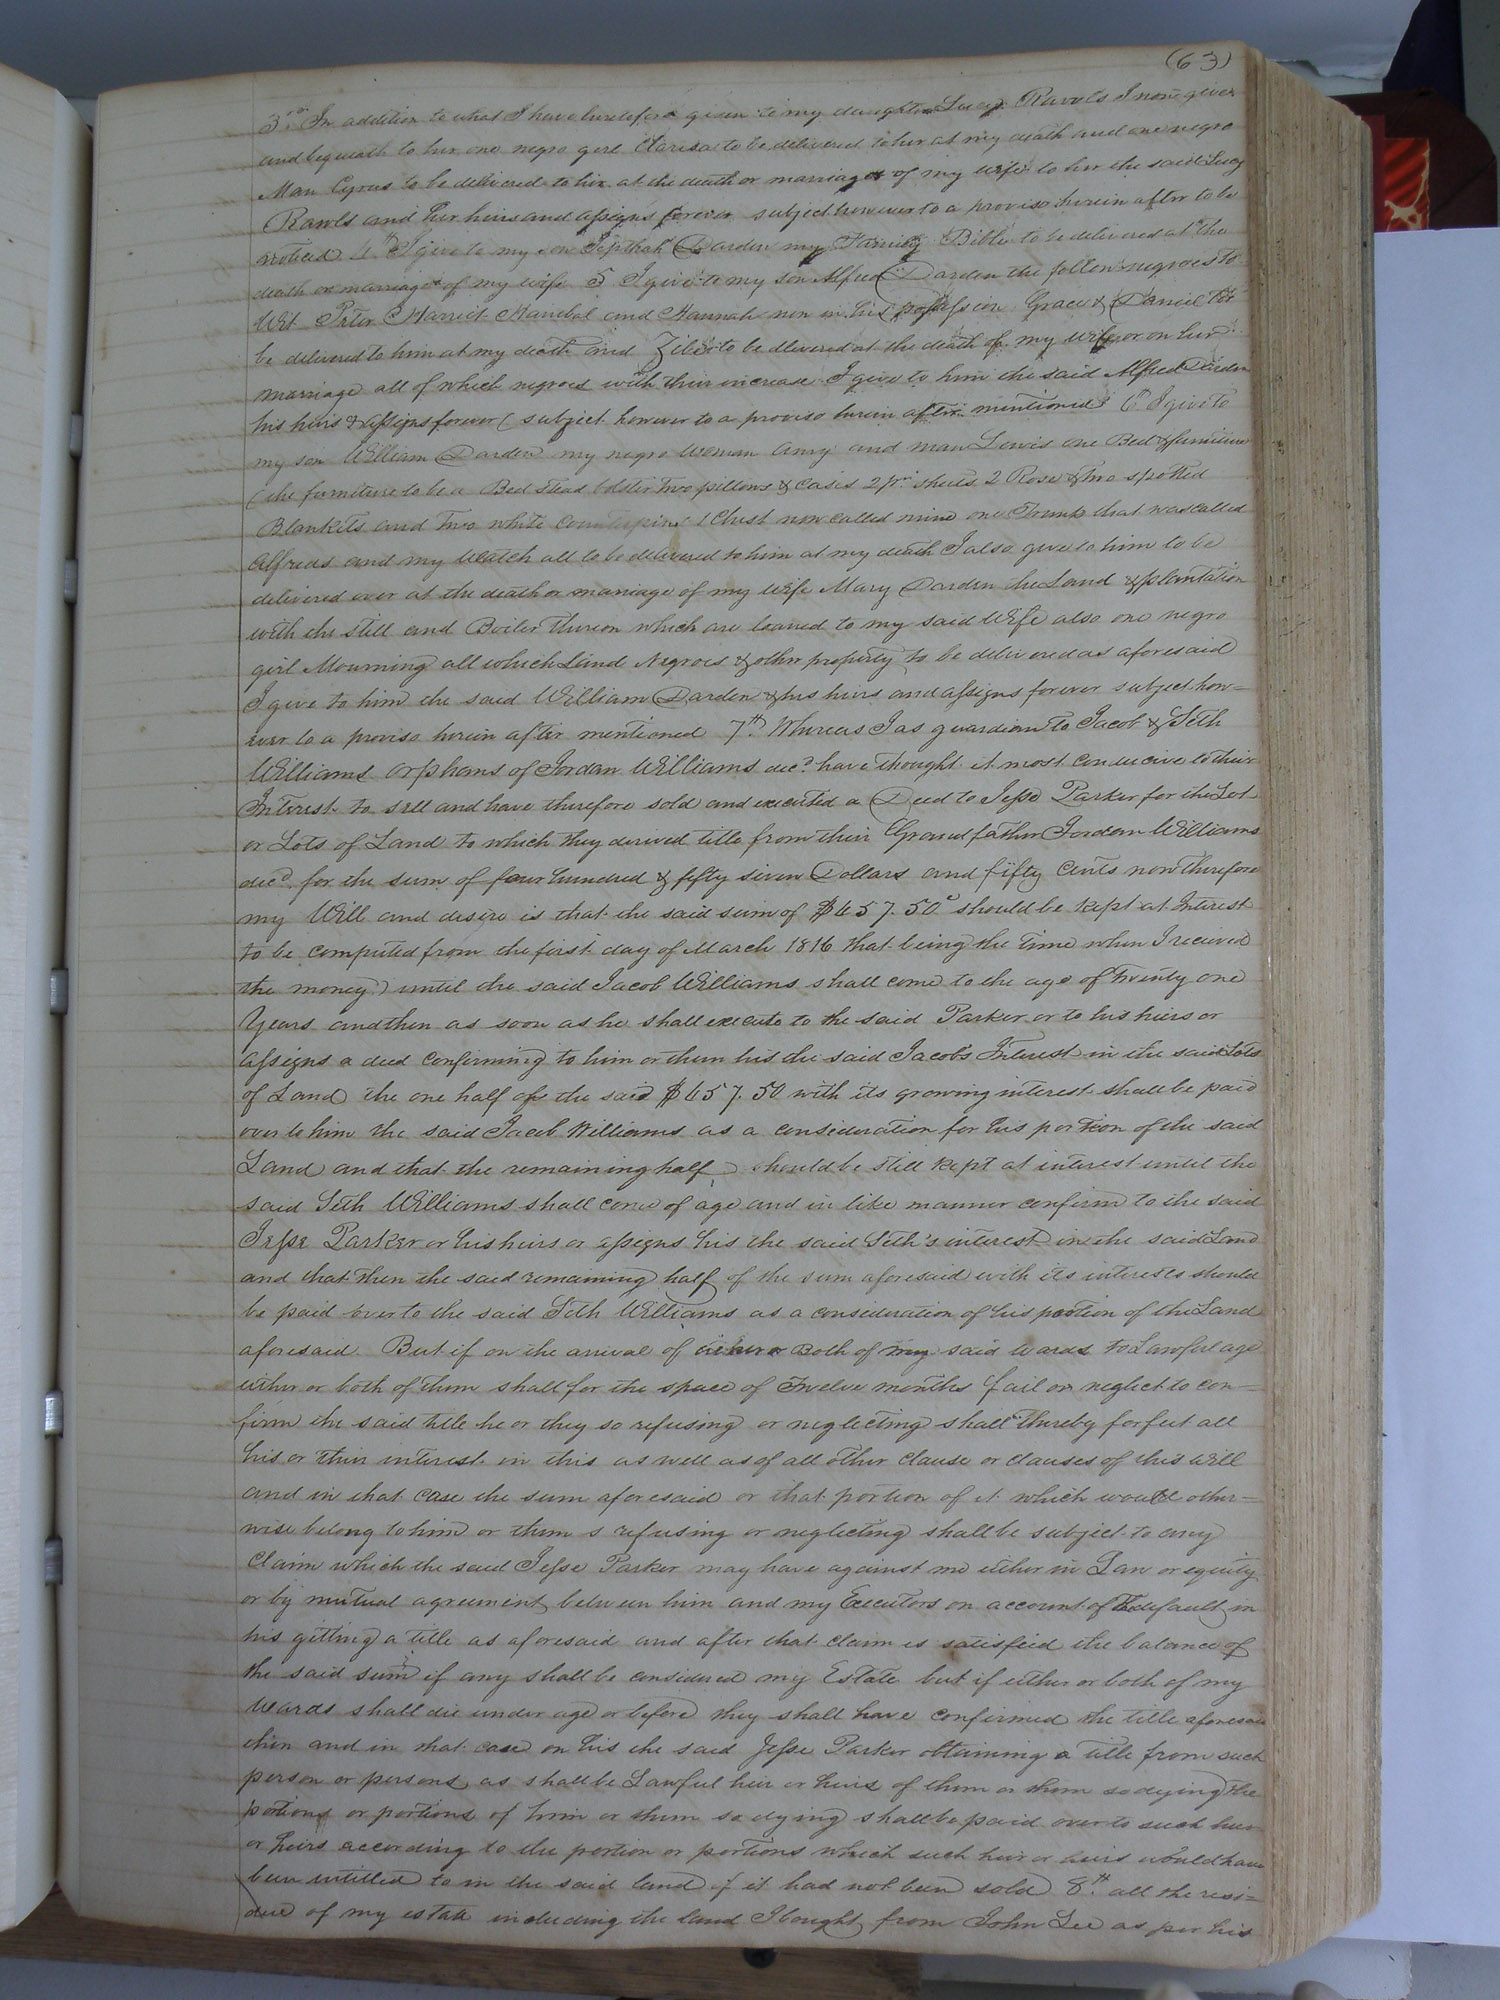 (63)
3rd. In addition to what I have heretofore given to my daughter Lucy Rawls I now give
and bequeath to her one negro girl Clarisa to be delivered to her at my death and one negro
Man Cyrus to be delivered to her at the death or marriage of my wife to her the said Lucy
Rawls and her heirs and assigns forever subject however to a proviso herein after to be
noticed 4th I give to my son Jepthah Darden my Family Bible to be delivered at the
death or marriage of my wife 5 I give to my son Alfred Darden the follow negroes to
Wit Peter Harriet Hanibal and Hannah now in his possession Grace & Daniel to
be delivered to him at my death and to be dlivered at the death of my wife or on her
marriage all of which negroes with their increase I give to him the said Alfred Darden
his heirs & assigns forever (subject however to a proviso herein after mentioned 6 I give to
my son William Darden my negro woman Amy and man Lewis one Bed & furniture
(the furniture to be a Bed stead bolster two pillows & cases 2 pr. sheets 2 Rose & two spotted
Blankets and two white Counterpins 1 Chest now called mine one Trunk that was called
Alfreds and my Watch all to be delivered to him at my death I also give to him to be
delivered over at the death or marriage of my wife Mary Darden the Land & plantation
with the still and Boiler thereon which are loaned to my said Wife also one negro
girl Mourning all which Land Negroes & other property to be delivered as aforesaid
I give to him the said William Darden & his heirs and assigns forever subject how=
ever to a proviso herein after mentioned 7th. Whereas I as guardian to Jacob & Seth
Williams orphans of Jordan Williams decd. have thought it most conducive to their
Interest to sell and have therefore sold and executed a Deed to Jesse Parker for the Lot
or Lots of Land to which they derived title from their Grandfather Jordan Williams
decd. for the sum of four hundred & fifty seven Dollars and fifty Cents now therefore
my Will and desire is that the said sum of $457.50c should be kept at Interest
to be computed from the first day of March 1816 that being the time when I received
the money) until the said Jacob Williams shall come to the age of twenty one
Years and then as soon as he shall execute to the said Parker or to his heirs or
assigns a deed confirming to him or them his the said Jacob's Interest in the said Lots
of Land the one half of the said $457.50 with its growing interest shall be paid
over to him the said Jacob Williams as a consideration for his portion of the said
Land and that the remaining half should be still kept at interest until the
said Seth Williams shall come of age and in like manner confirm to the said
Jesse Parker or his heirs or assigns his the said Seth's interest in the said Land
and that then the said remaining half of the sum aforesaid with its interests should
be paid over to the said Seth Williams as a consideration of his portion of the Land
aforesaid But if on the arrival of either or Both of my said wards to Lawful age
either or both of them shall for the space of Twelve months fail or neglect to con=
firm the said title he or they so refusing or neglecting shall thereby forfeit all
his or their interest in this as well as of all other clause or clauses of this will
and in that case the sum aforesaid or that portion of it which would other=
wise belong to him or them s refusing or neglecting shall be subject to any
Claim which the said Jesse Parker may have against me either in Law or equity
or by mutual agreement between him and my Executors on account of default in
his gitting a title as aforesaid and after that claim is satisfeid the balance of
the said sum if any shall be considered my Estate but if either or both of my
wards shall die under age or before they shall have confirmed the title aforesaid
then and in that case on his the said Jesse Parker obtaining a title from such
person or persons as shall be Lawful heir or heirs of them or them so dying the
portions or portions of him or them so dying shall be paid over to such heir
or heirs according to the portion or portions which such heir or heirs would have
been intitled to in the said land if it had not been sold 8th. all the resi=
due of my estate including the land I bought from John Lee as per his